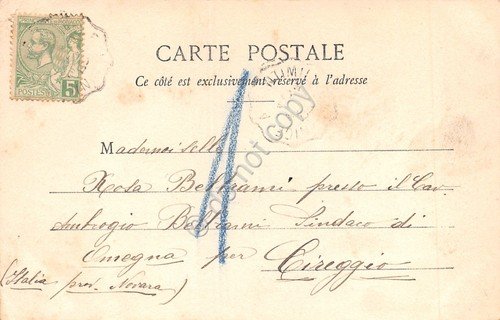 CARTE POSTALE
Ce côté est exclusivement réservé à l'adresse
POSTES
5
1
Mademoiselle
Rosa Beltrami presso il Cav.
Ambrogio Beltrami Sindaco di
Omegna per Cireggio
(Italia prov. Novara)
do not Copy